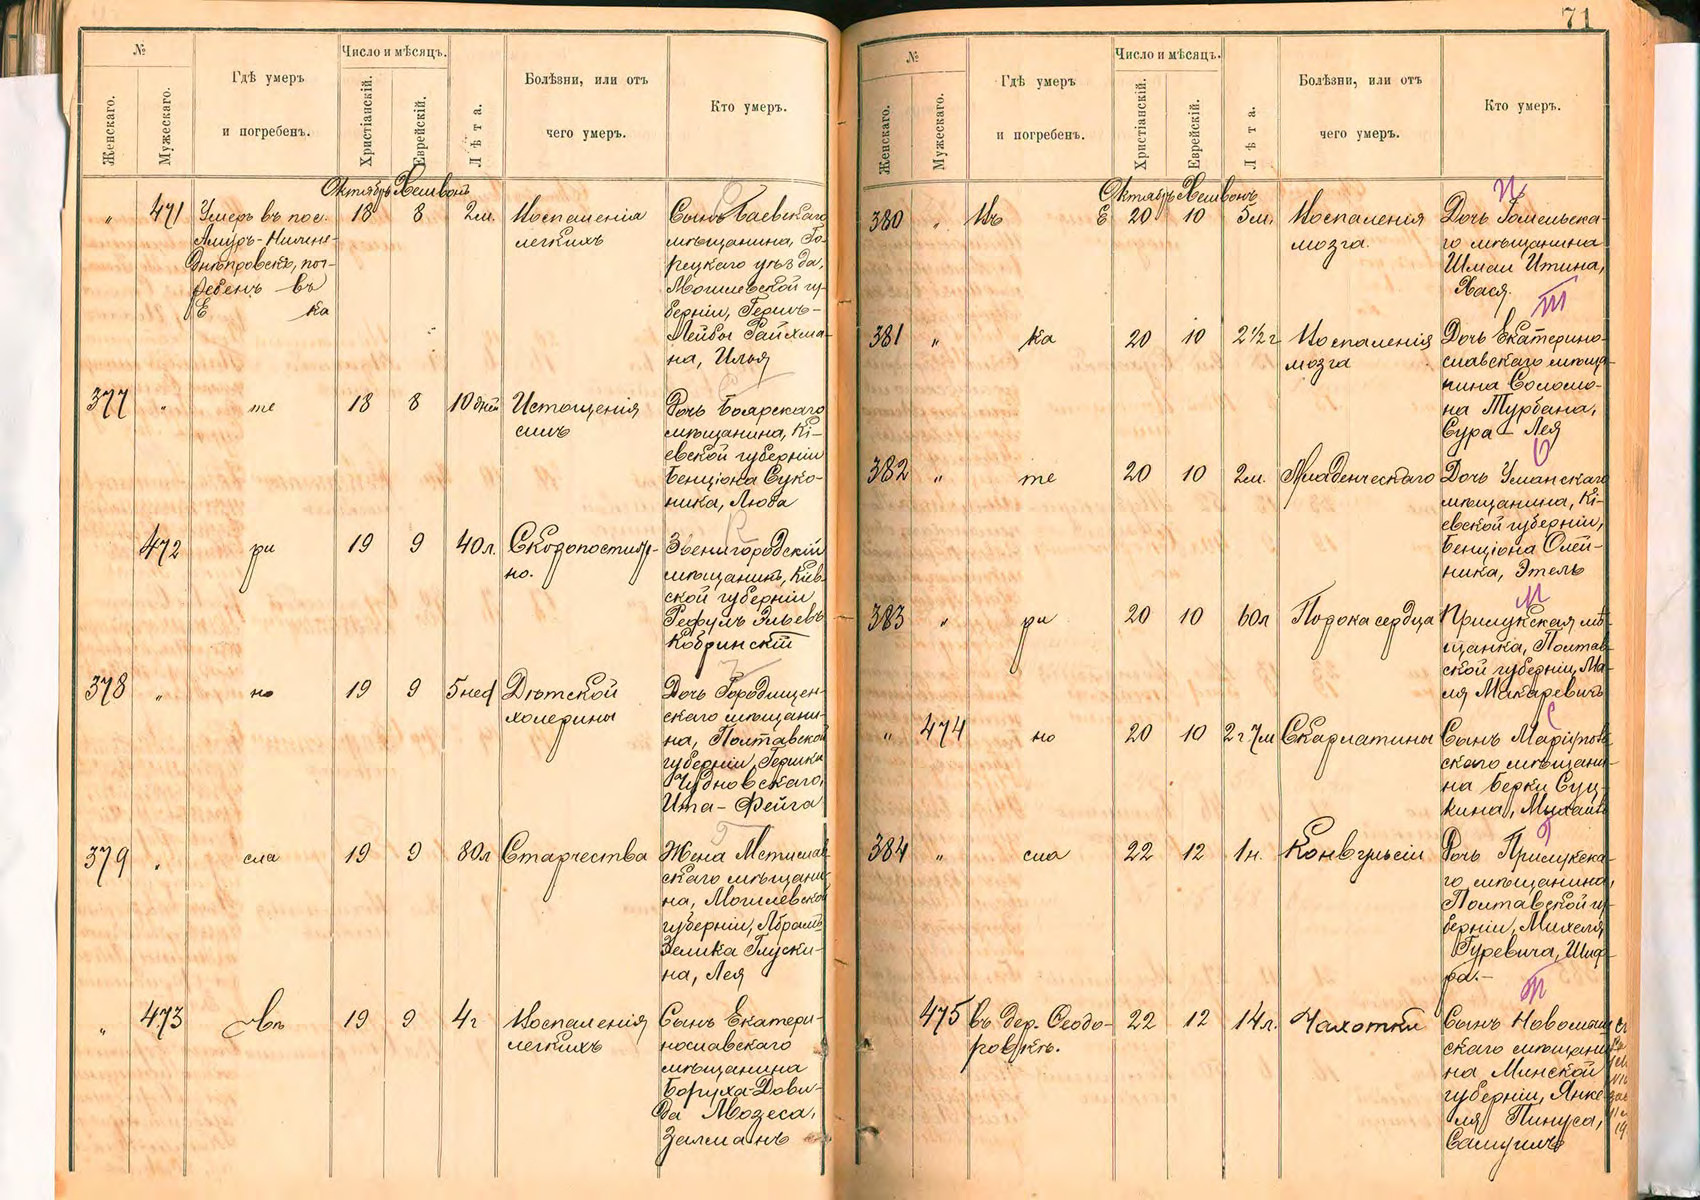 №
Женскаго.
Мужескаго.
Гдѣ умеръ
и погребенъ.
Число и мѣсяцъ.
Христіанскій.
Еврейскій.
Лѣта.
Болѣзни, или отъ
чего умеръ.
Кто умеръ.
Октябрь Хешвонъ
" 471 Умеръ въ пос. 18 8 2м. Воспаленія Сынъ Баевскаго
Амуръ-Нижне- легкихъ мѣщанина, Го-
Днѣпровскъ, пог- рецкаго уѣзда,
ребенъ въ Могилевской гу-
Е ка берніи, Гершъ-
Лейбы Райхма-
на, Илья
377 " те 18 8 10 дней Истощенія Дочь Боярскаго
силъ мѣщанина, Кі-
евской губерніи
Бенціона Суко-
ника, Люба
472 ри 19 9 40л. Скоропостиж- Звенигородскій
но. мѣщанинъ, Кіев-
ской губерніи
Рефулъ Эльевъ
Кобринскій
378 " но 19 9 5 нед Дѣтской Дочь Городищен-
холерины скаго мѣщани-
на, Полтавской
губерніи, Гершка
Чудновскаго,
Ита-Фейга
379 " сла 19 9 80л Старчества Жена Мстислав-
скаго мѣщани-
на, Могилевской
губерніи, Абрамъ
Зелика Глуски-
на, Лея
" 473 въ 19 9 4г Воспаленія Сынъ Екатери-
легкихъ нославскаго
мѣщанина
Боруха-Дови-
да Мозеса,
Залманъ
71
№
Женскаго.
Мужескаго.
Гдѣ умеръ
и погребенъ.
Число и мѣсяцъ.
Христіанскій.
Еврейскій.
Лѣта.
Болѣзни, или отъ
чего умеръ.
Кто умеръ.
Октябрь Хешвонъ
И
380 " Въ Е 20 10 5м. Воспаленія Дочь Гомельска-
мозга. го мѣщанина
Шмаи Итина,
Хася.
Т
381 " ка 20 10 2½г Воспаленія Дочь Екатерино-
мозга славскаго мѣща-
нина Соломо-
на Турбана,
Сура-Лея
О
382 " те 20 10 2м. Младенческаго Дочь Уманскаго
мѣщанина, Кі-
евской губерніи,
Бенціона Олей-
ника, Этель
М
383 " ри 20 10 60л Порока сердца Прилукская мѣ-
щанка, Полтав-
ской губерніи, Ма-
ля Макаревичъ
С
" 474 но 20 10 2г 7м Скарлатины Сынъ Маріуполь-
скаго мѣщани-
на Берки Суц-
кина, Михаилъ
Г
384 " сла 22 12 1н. Конвульсіи Дочь Прилукска-
го мѣщанина,
Полтавской гу-
берніи, Михеля
Гуревича, Шиф-
ра.-
475 въ дер. Ѳеодо- 22 12 14л. Чахотки Сынъ Новомыш
ровкѣ. скаго мѣщани
на Минской
губерніи, Янке-
ля Пинуса,
Самуилъ